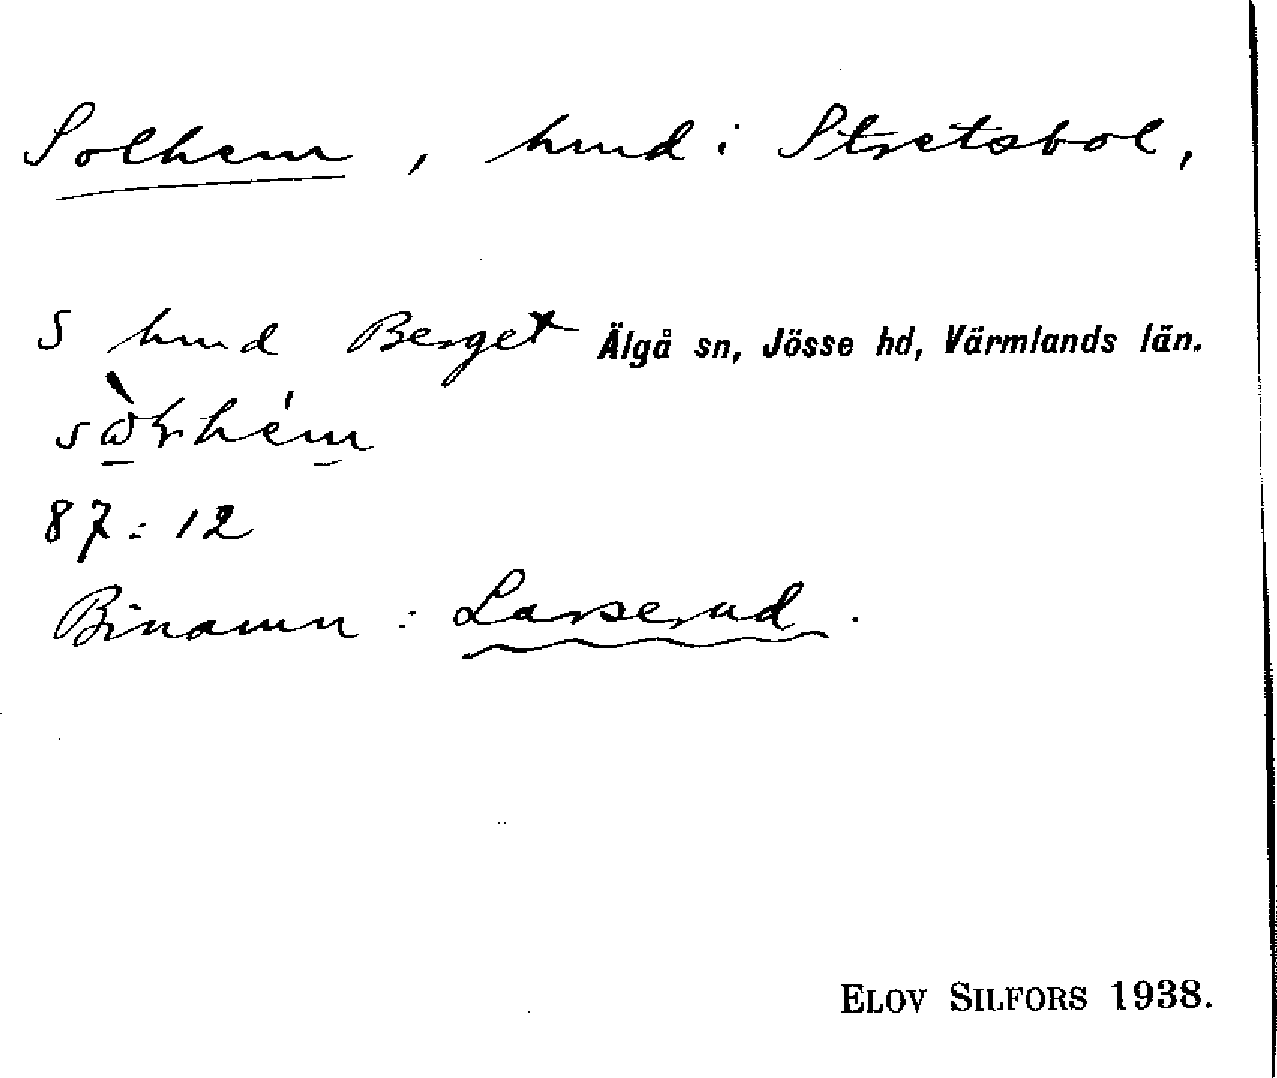 Solhem, hmd i Stretsbol,
S hmd Berget Älgå sn, Jösse hd, Värmlands län.
87:12
Binamn: Larserud.
ELOV SILFORS 1938.